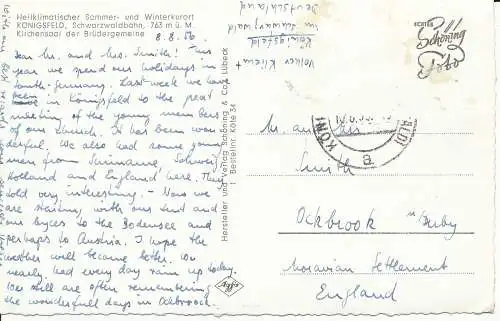 Heilklimatischer Sommer- und Winterkurort
KÖNIGSFELD, Schwarzwaldbahn, 763 m ü. M.
Kirchensaal der Brüdergemeine
8.8.56
Dear Mr. and Mrs. Smith! This
year we spend our holidays in
South-Germany. Last week we have
been
in Königsfeld to the great
meeting of the young members
of our church. It has been won-
derful. We also had some young
men from Suriname, Schweiz,
Holland and England here. They
told very interesting. - Now we
are starting with our tent and
our bycles to the Bodensee and
perhaps to Austria. I hope the
weather will become better. We
nearly had every day rain up today.
We still are often remembering
the wonderfull days in Ockbrook.
Hersteller und Verlag Schöning & Co., Lübeck
1 Bestellnr. Köfe 34
Agfa
Volker Klimt
Königsfeld
im Schwarzwald
Deutschland
ECHTES
Schöning
Foto
KÖNI
WALD)
a
Mr. and Mrs
Smith
Ockbrook n/Derby
Moravian Settlement
England